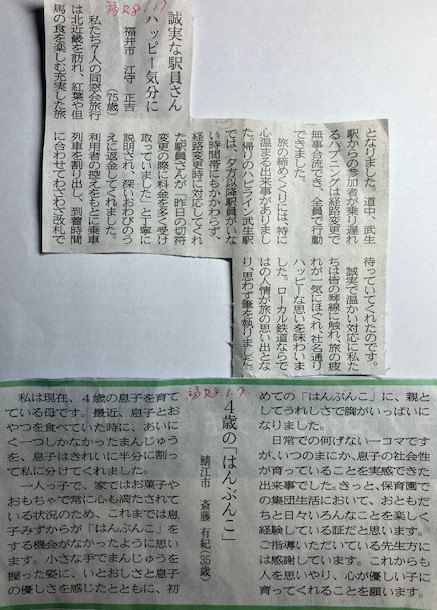 福R8.1.9
誠実な駅員さん
ハッピー気分に
福井市 江守 正吉
(75歳)
私たち7人の同窓会旅行
は北近畿を訪れ、紅葉や但
馬の食を楽しむ充実した旅
となりました。道中、武生
駅からの参加者が乗り遅れ
るハプニングは経路変更で
無事合流でき、全員で行動
できました。
旅の締めくくりには、特に
心温まる出来事がありまし
た。帰りのハピライン武生駅
では、夕方以降駅員がいな
い時間帯にもかかわらず、
経路変更時に対応してくれ
た駅員さんが「昨日の切符
変更の際に料金を多く受け
取っていました」と丁寧に
説明され、深いおわびのう
えに返金してくれました。
利用者の控えをもとに乗車
列車を割り出し、到着時間
に合わせてわざわざ改札で
待っていてくれたのです。
誠実で温かい対応に私た
ちは皆の琴線に触れ、旅の疲
れが一気にほぐれ、社名通り
ハッピーな思いを味わいま
した。ローカル鉄道ならで
はの人情が旅の思い出とな
り、思わず筆を執りました。
福R8.1.9
4歳の「はんぶんこ」
鯖江市 斎藤 有紀(35歳)
私は現在、4歳の息子を育て
ている母です。最近、息子とお
やつを食べていた時に、あいに
く一つしかなかったまんじゅう
を、息子はきれいに半分に割っ
て私に分けてくれました。
一人っ子で、家ではお菓子や
おもちゃで常に心も満たされて
いる状況のため、これまでは息
子みずからが「はんぶんこ」を
する機会がなかったように思い
ます。小さな手でまんじゅうを
握った姿に、いとおしさと息子
の優しさを感じたとともに、初
めての「はんぶんこ」に、親と
してうれしさで胸がいっぱいに
なりました。
日常での何げない一コマです
が、いつのまにか、息子の社会性
が育っていることを実感できた
出来事でした。きっと、保育園で
の集団生活において、おともだ
ちと日々いろんなことを楽しく
経験している証だと思います。
ご指導いただいている先生方に
は感謝しています。これからも
人を思いやり、心が優しい子に
育ってくれることを願います。